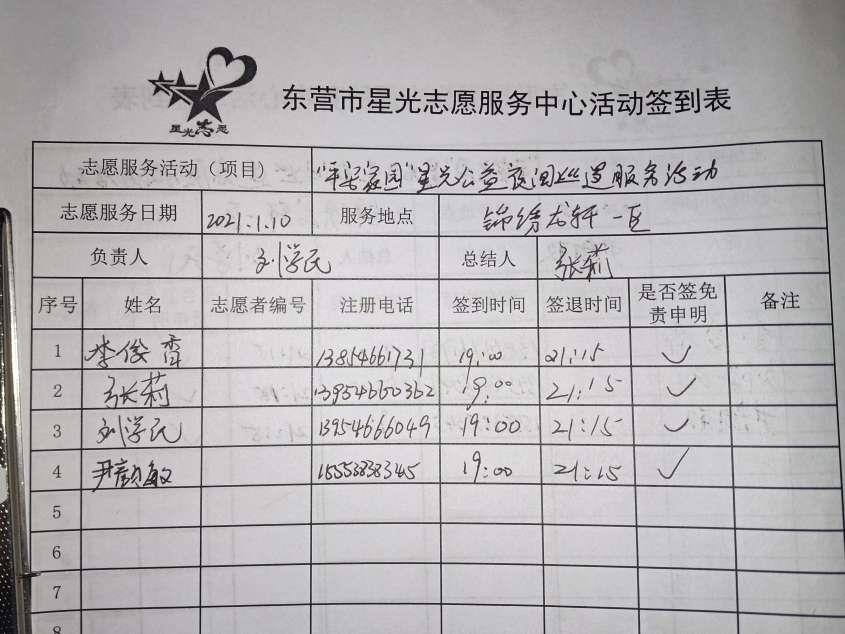 星光志愿
东营市星光志愿服务中心活动签到表
志愿服务活动（项目） “平安家园”星光公益夜间巡逻服务活动
志愿服务日期 2021.1.10 服务地点 锦绣龙轩一区
负责人 刘学民 总结人 张莉
序号 姓名 志愿者编号 注册电话 签到时间 签退时间 是否签免责申明 备注
1 李俊香 13854661731 19:00 21:15 ✓
2 张莉 13954660362 19:00 21:15 ✓
3 刘学民 13954666049 19:00 21:15 ✓
4 尹颜敏 15553838345 19:00 21:15 ✓
5
6
7
8